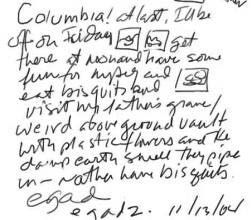 Columbia! at last, I'll be
off on Friday get
there at noon and have some
fun for myself and
eat bisquits and
visit my father's grave/
weird above ground vault
with plastic flowers and the
damp earth smell they pipe
in — rather have bisquits.
egad
egad 2. 11/12/04